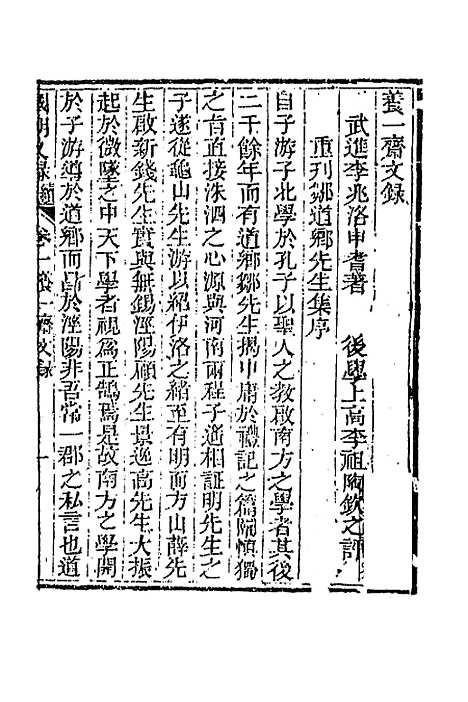 養一齋文錄
武進李兆洛申耆著　後學上高李祖陶欽之評
重刊鄒道鄉先生集序
自子游子北學於孔子以聖人之敎啟南方之學者其後
二千餘年而有道鄉鄒先生揭中庸於禮記之篇闡愼獨
之旨直接洙泗之心源與河南兩程子遙相証明先生之
子遂從龜山先生游以紹伊洛之緒至有明前方山薛先
生啟新錢先生實與無錫涇陽顧先生景逸高先生大振
起於微墜之中天下學者視爲正鵠焉是故南方之學開
於子游導於道鄉而昌於涇陽非吾常一郡之私言也道
國朝文錄續　卷一養一齋文錄　一